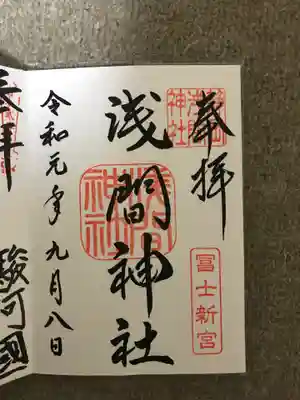 奉拝
富士新宮
浅間神社
浅間神社
令和元年九月八日
参拝
駿河國